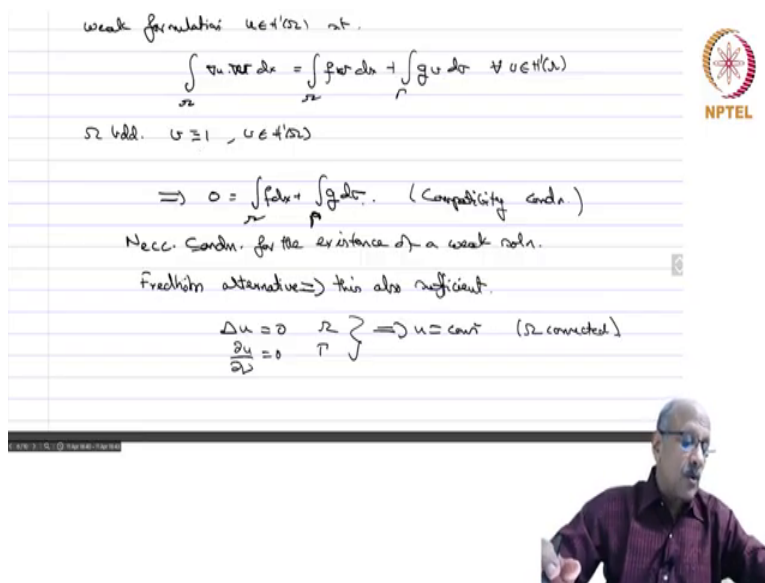 weak formulation u∈H'(Ω) st.
∫_Ω ∇u.∇v dx = ∫_Ω fv dx + ∫_Γ gv dσ ∀ v∈H'(Ω)
Ω bdd. v≡1, v∈H'(Ω)
=> 0 = ∫_Ω fdx + ∫_Γ g dσ. (Compatibility condn.)
Necc. Condn. for the existence of a weak soln.
Fredholm alternative => this also sufficient.
Δu = 0 Ω } => u = const (Ω connected)
∂u/∂ν = 0 Γ
NPTEL